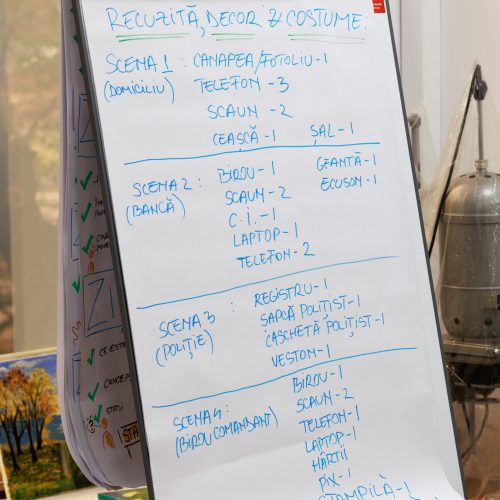 RECUZITĂ, DECOR & COSTUME:
SCENA 1 : CANAPEA/FOTOLIU-1
(DOMICILIU) TELEFON-3
SCAUN-2
CEAȘCĂ-1 ȘAL-1
SCENA 2 : BIROU-1 GEANTĂ-1
(BANCĂ) SCAUN-2 ECUSON-1
C.I.-1
LAPTOP-1
TELEFON-2
SCENA 3 : REGISTRU-1
(POLIȚIE) ȘAPCĂ POLIȚIST-1
CASCHETĂ POLIȚIST-1
VESTON-1
SCENA 4: BIROU-1
(BIROU COMANDANT) SCAUN-2
TELEFON-1
LAPTOP-1
HÂRTII
PIX-1
ȘTAMPILĂ-1
CE ESTE
CONCEP
STATU